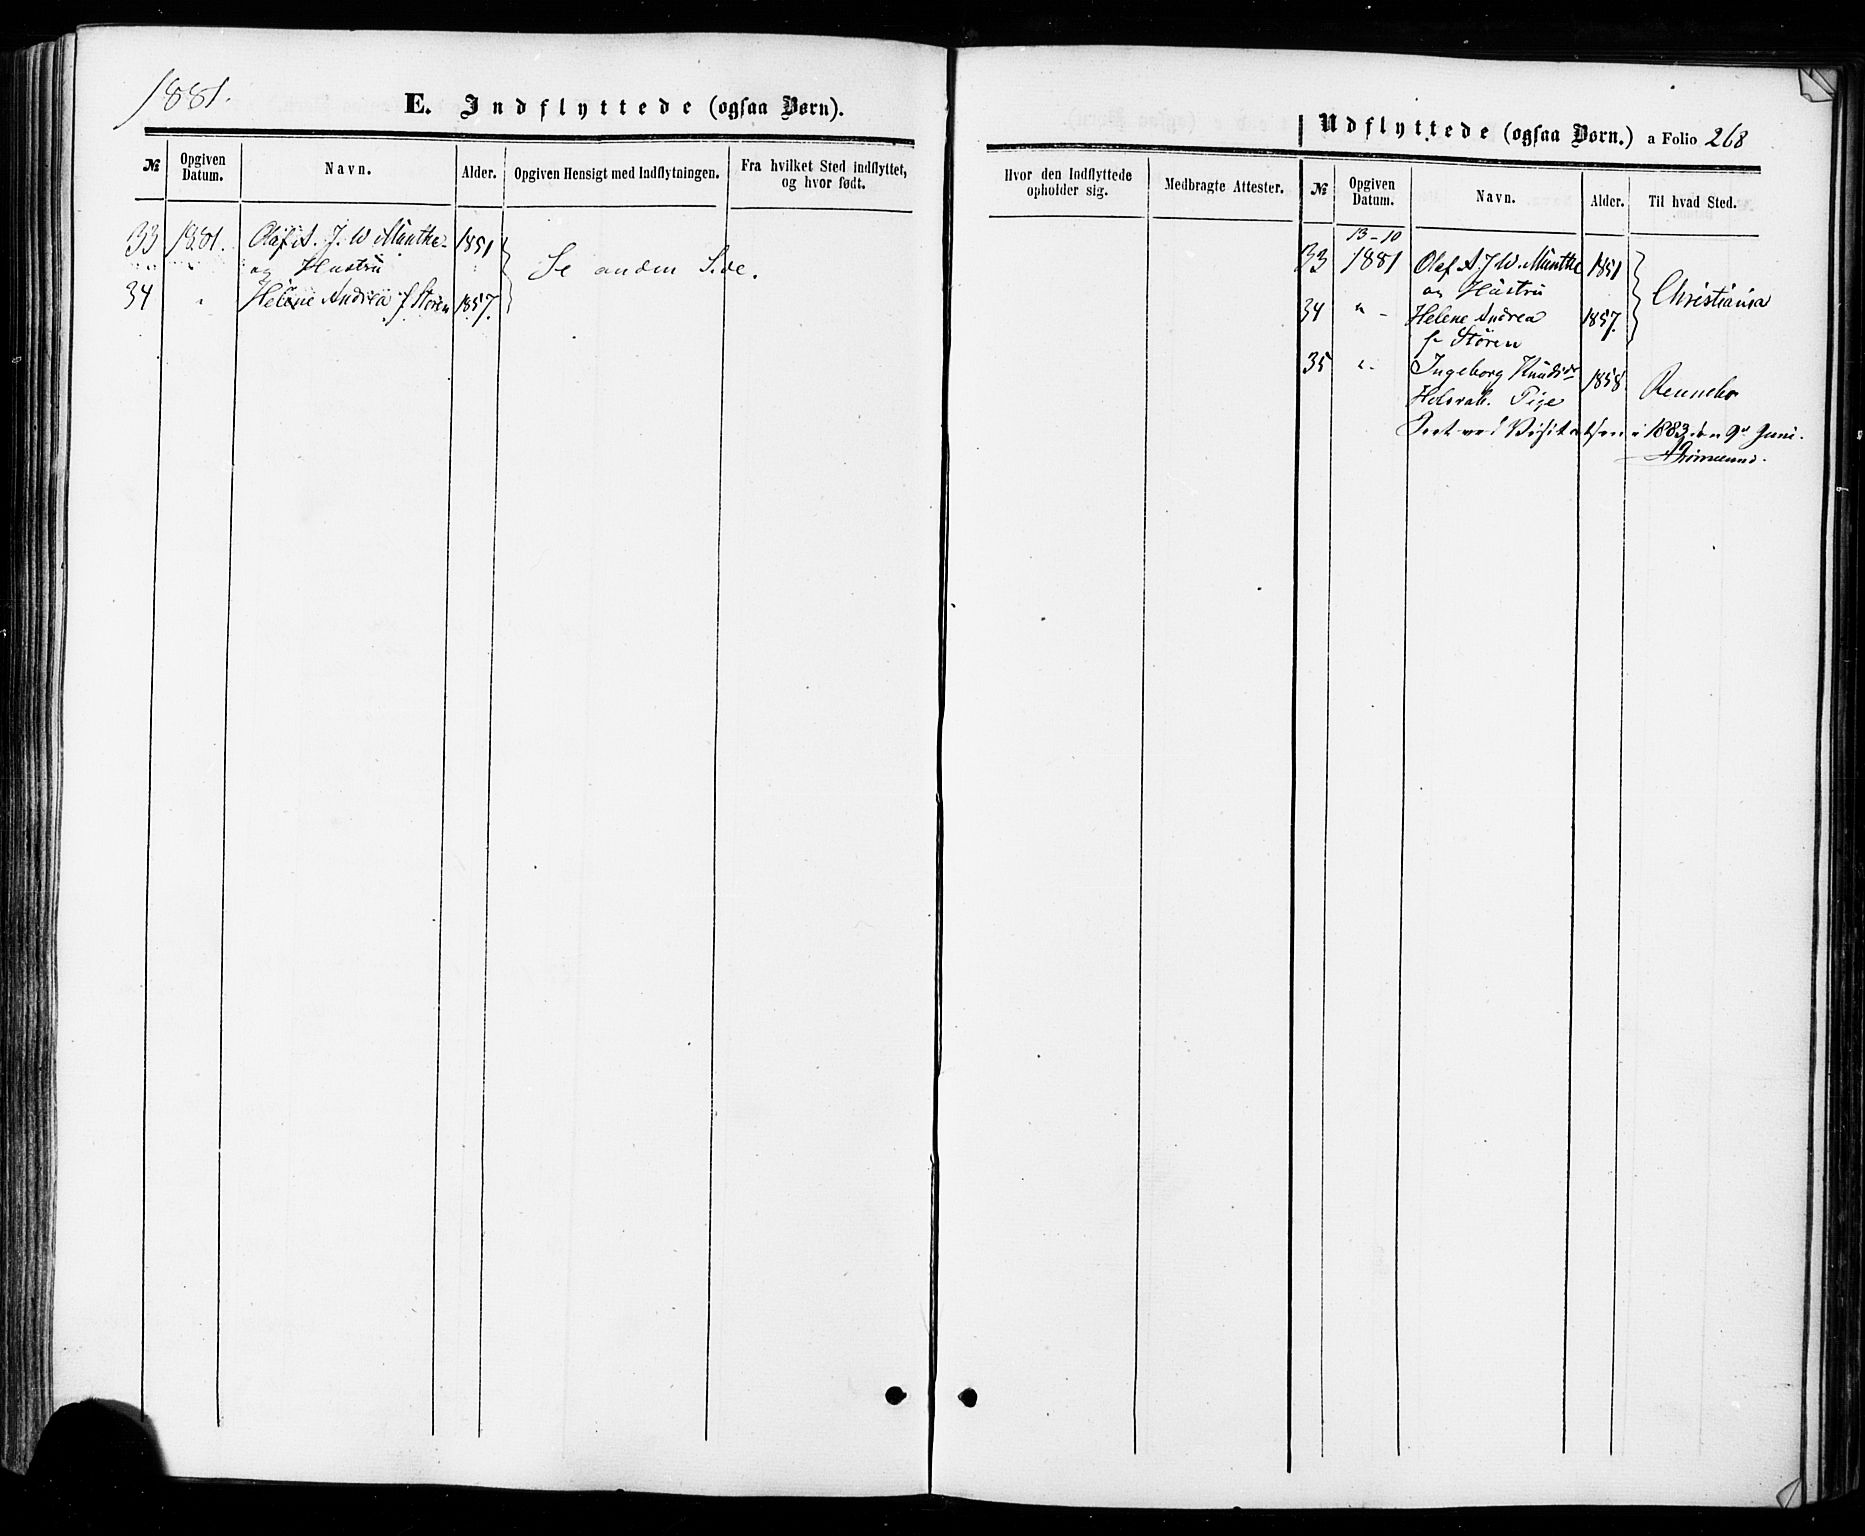 1881.
E. Indflyttede (ogsaa Børn).
№ Opgiven Datum. Navn. Alder. Opgiven Hensigt med Indflytningen. Fra hvilket Sted indflyttet, og hvor født.
33 1881. Olaf A. J. W. Munthe 1851
og Hustru
Se anden Side.
34 " Helene Andrea f. Støren 1857.
Udflyttede (ogsaa Børn.) a Folio 268
Hvor den Indflyttede opholder sig. Medbragte Attester. № Opgiven Datum. Navn. Alder. Til hvad Sted.
13-10
33 1881 Olaf A. J. W. Munthe 1851
og Hustru
Christiania
34 " - Helene Andrea 1857.
f. Støren
35 " - Ingeborg Knudsdr 1858
Pige Rennebo
ved Visitatsen i 1883 den 9de Juni.